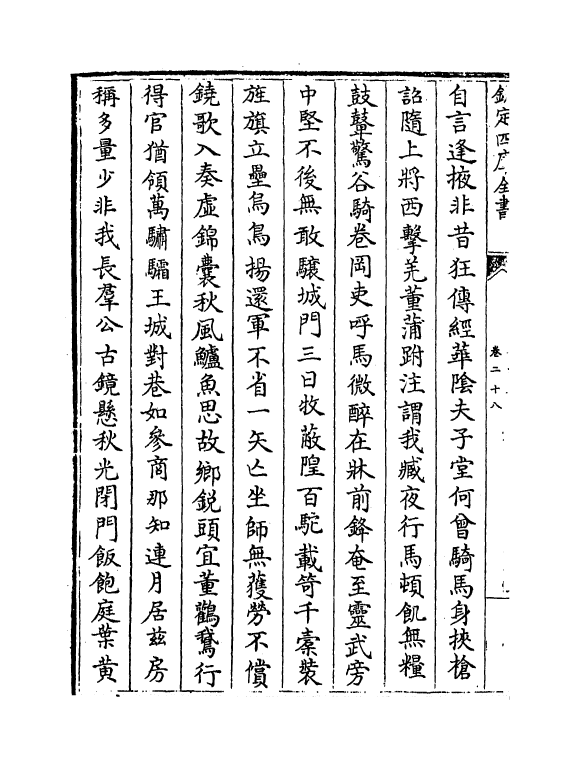 欽定四庫全書
卷二十八
自言逢掖非昔狂傳經華陰夫子堂何曾騎馬身挾槍
詔隨上將西擊羌董蒲跗注謂我臧夜行馬頓飢無糧
鼓鼙驚谷騎卷岡吏呼馬微醉在牀前鋒奄至靈武旁
中堅不後無敢驤城門三日牧蔽隍百駝載笴千橐裝
旌旗立壘烏鳥揚還軍不省一矢亡坐師無獲勞不償
鐃歌入奏虛錦囊秋風鱸魚思故鄉銳頭宜董鸛鵞行
得官猶領萬驌驦王城對巷如參商那知連月居兹房
稱多量少非我長羣公古鏡懸秋光閉門飯飽庭葉黄